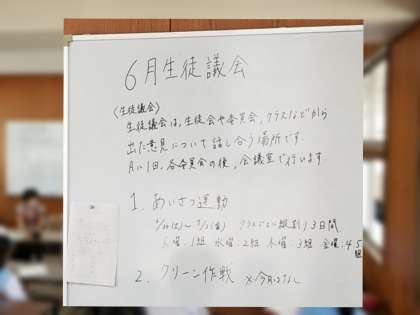 6月生徒議会
〈生徒議会〉
生徒議会は、生徒会や委員会、クラスなどから
出た意見について話し合う場所です。
月に1回、各委員会の後、会議室で行います。
1. あいさつ運動
クラスごとに組割り3日間
火曜:1組 水曜:2組 木曜:3組 金曜:4.5組
2. クリーン作戦 ※今月はなし